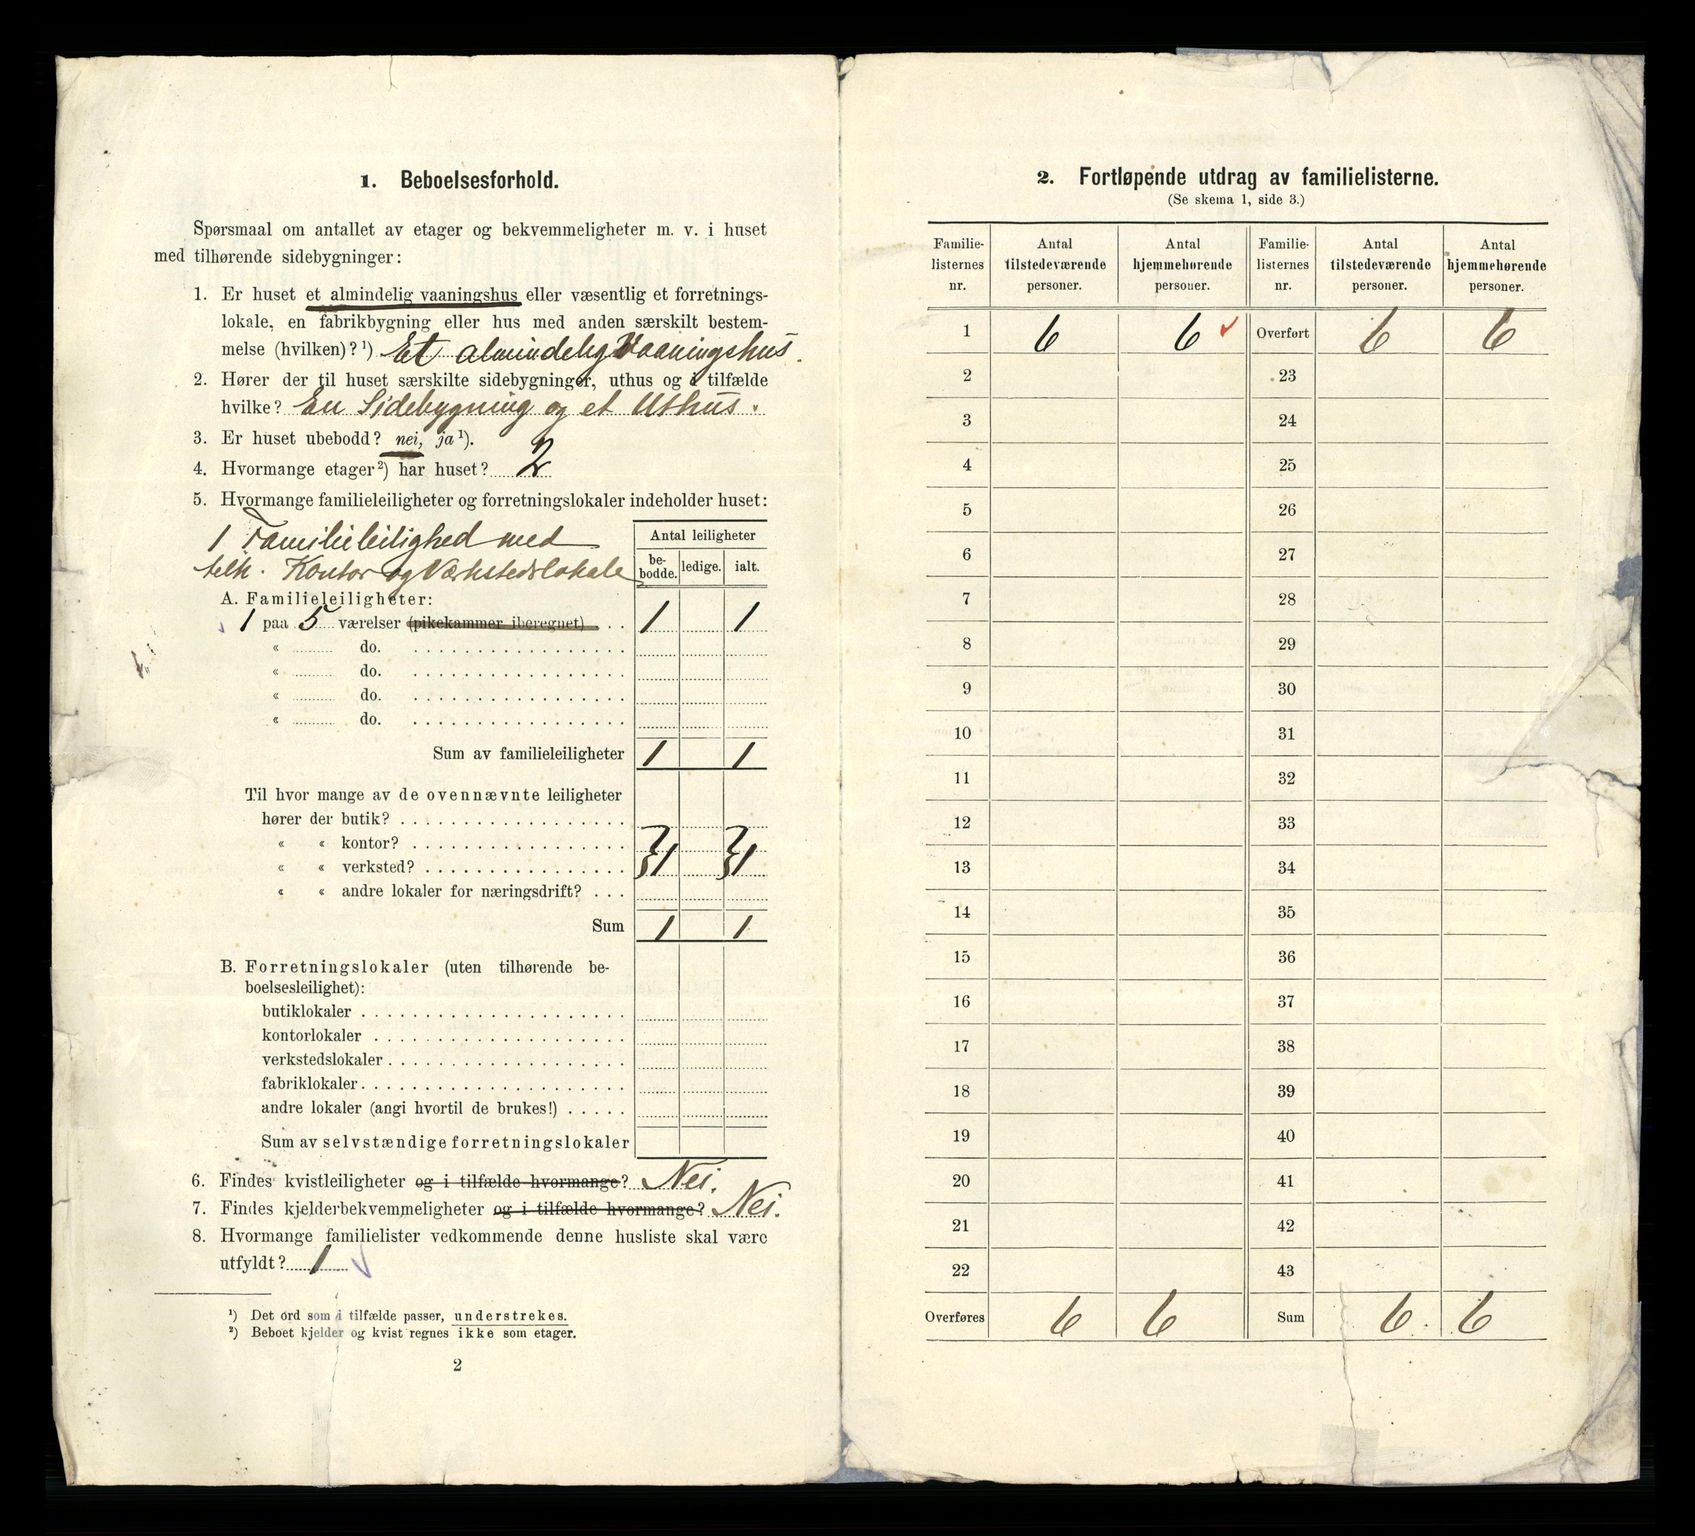 1. Beboelsesforhold.
Spørsmaal om antallet av etager og bekvemmeligheter m. v. i huset
med tilhørende sidebygninger:
1. Er huset et almindelig vaaningshus eller væsentlig et forretnings-
lokale, en fabrikbygning eller hus med anden særskilt bestem-
melse (hvilken)? ¹) Et almindelig Vaaningshus.
2. Hører der til huset særskilte sidebygninger, uthus og i tilfælde
hvilke? En Sidebygning og et Uthus.
3. Er huset ubebodd? nei, ja ¹).
4. Hvormange etager ²) har huset? 2
5. Hvormange familieleiligheter og forretningslokaler indeholder huset:
1 Familieleilighed med
Kontor og Værkstedslokale
Antal leiligheter
be-bodde. ledige. ialt.
A. Familieleiligheter:
1 paa 5 værelser (pikekammer iberegnet) . . 1 1
« do.
« do.
« do.
« do.
Sum av familieleiligheter 1 1
Til hvor mange av de ovennævnte leiligheter
hører der butik?
« « kontor?
« « verksted? 1 1
« « andre lokaler for næringsdrift?
Sum 1 1
B. Forretningslokaler (uten tilhørende be-
boelsesleilighet):
butiklokaler
kontorlokaler
verkstedslokaler
fabriklokaler
andre lokaler (angi hvortil de brukes!)
Sum av selvstændige forretningslokaler
6. Findes kvistleiligheter og i tilfælde hvormange? Nei.
7. Findes kjelderbekvemmeligheter og i tilfælde hvormange? Nei.
8. Hvormange familielister vedkommende denne husliste skal være
utfyldt? 1
¹) Det ord som i tilfælde passer, understrekes.
²) Beboet kjelder og kvist regnes ikke som etager.
2
2. Fortløpende utdrag av familielisterne.
(Se skema 1, side 3.)
Familie- Antal Antal Familie- Antal Antal
listernes tilstedeværende hjemmehørende listernes tilstedeværende hjemmehørende
nr. personer. personer. nr. personer. personer.
1 6 6 Overført 6 6
2 23
3 24
4 25
5 26
6 27
7 28
8 29
9 30
10 31
11 32
12 33
13 34
14 35
15 36
16 37
17 38
18 39
19 40
20 41
21 42
22 43
Overføres 6 6 Sum 6. 6